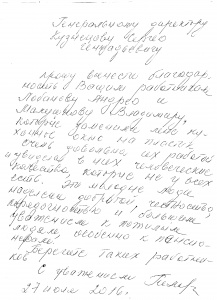 Генеральному директору
Кузнецову Сергею
Геннадьевичу
прошу вынести благодар
ность Вашим работникам
Андрею и
Владимиру,
которые заменили мне ку-
хонные окна на пластик
очень довольна их работой
и увидела в них человеческие
качества, которые не у всех
есть. Эти молодые люди
наделены добротой, честностью,
порядочностью и большим
уважением к пожилым
людям, особенно к пенсио-
нерам.
Берегите таких работни-
ков
С уважением
27 июля 2016г.